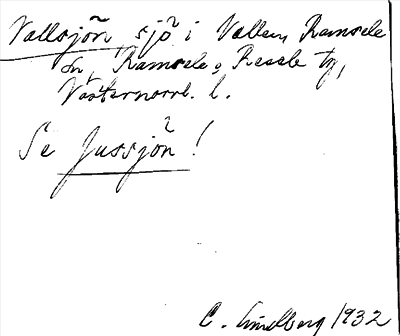 Vallsjön, sjö i Vallen, Ramsele
sn, Ramsele o. Resele tg,
Västernorrl. l.
Se Jussjön!
C. Lindberg 1932